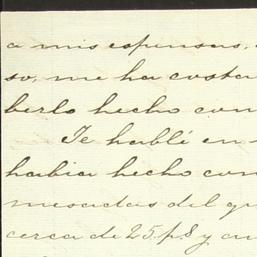 a mis espensas,
so, me ha costa
berlo hecho con
Te hablé en
habia hecho con
mesadas del qu
cerca de 25 p8 y